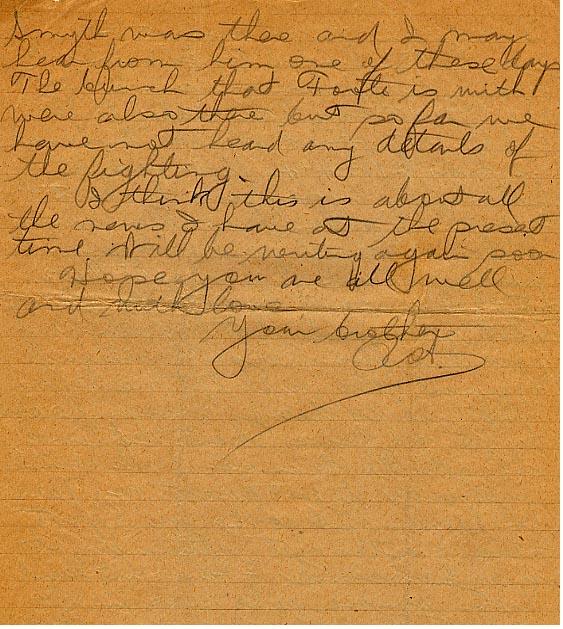 Smyth was there and I may
hear from him one of these days
The bunch that Foote is with
were also there but so far we
have not heard any details of
the fighting.
I think this is about all
the news I have at the present
time. Will be writing again soon
Hope you are all well
and with love
Your brother